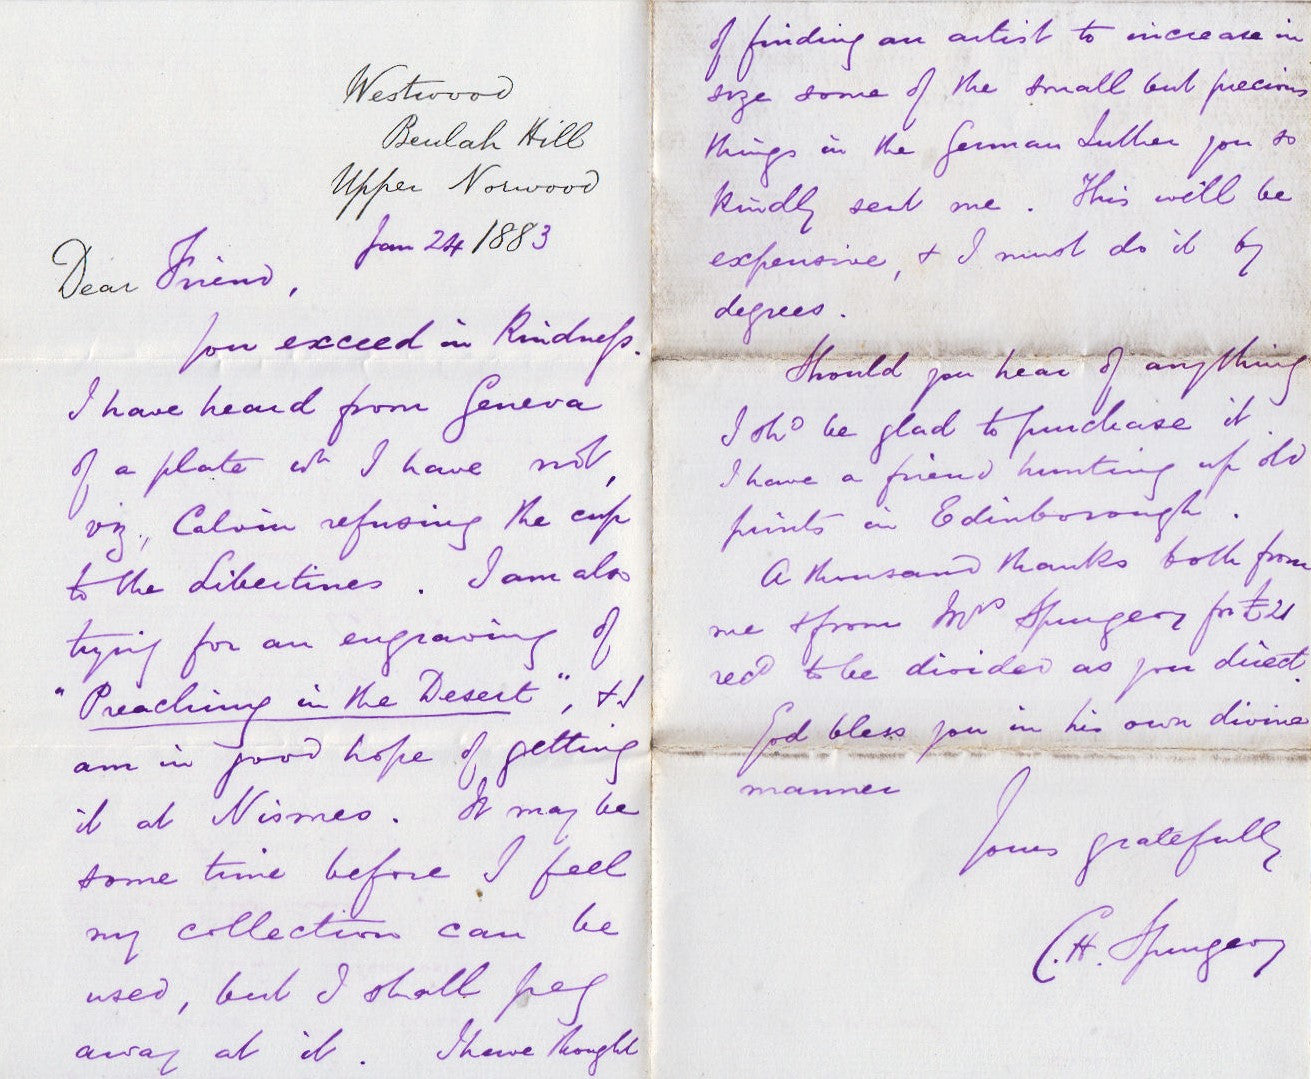 Westwood
Beulah Hill
Upper Norwood
Jan 24 1883
Dear Friend,
You exceed in kindness.
I have heard from Geneva
of a plate wh I have not,
viz., Calvin refusing the cup
to the Libertines. I am also
trying for an engraving of
"Preaching in the Desert", & I
am in good hope of getting
it at Nismes. It may be
some time before I feel
my collection can be
used, but I shall peg
away at it. I have thought
of finding an artist to increase in
size some of the small but precious
things in the German Luther you so
kindly sent me. This will be
expensive, & I must do it by
degrees.
Should you hear of anything
I shd be glad to purchase it.
I have a friend hunting up old
prints in Edinborough.
A thousand thanks both from
me & from Mrs Spurgeon for £21
recd to be divided as you direct.
God bless you in his own divine
manner
Yours gratefully
C. H. Spurgeon